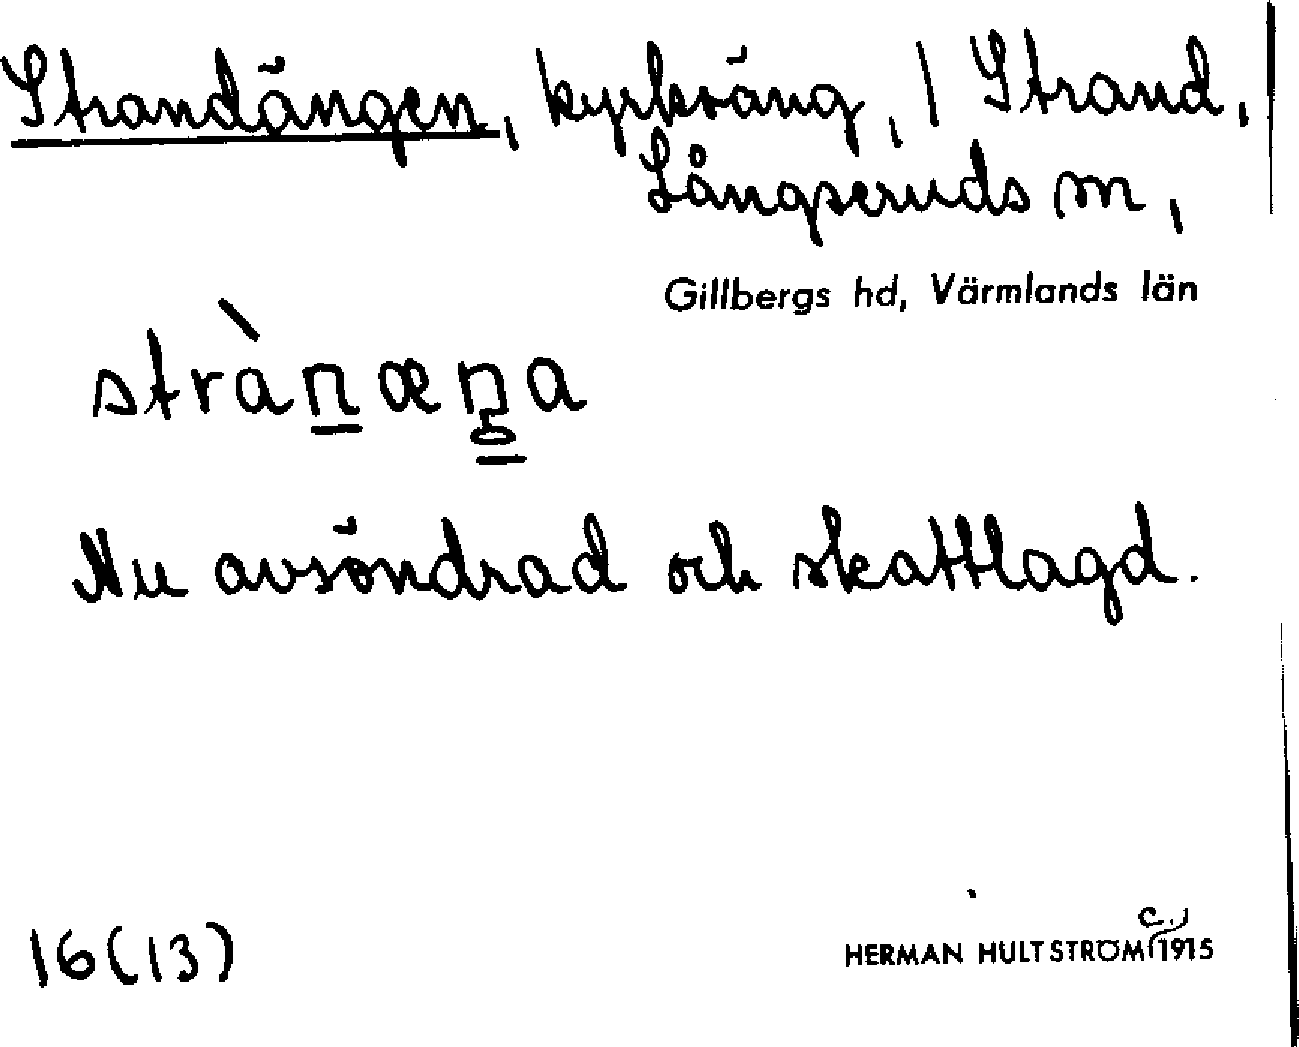 Strandängen, kyrkoäng, / Strand,
Långseruds sn,
Gillbergs hd, Värmlands län
Nu avsöndrad och skattlagd.
16(13)
C.
HERMAN HULTSTRÖM 1915